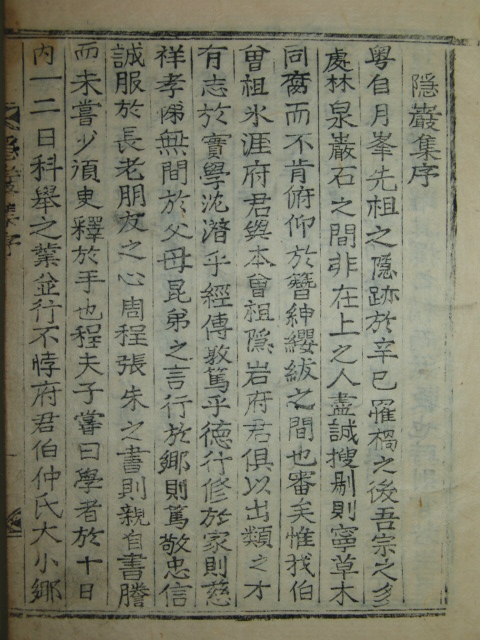 隱巖集序
粤自月峯先祖之隱跡於辛巳罹禍之後吾宗之多
處林泉巖石之間非在上之人盡誠搜剔則寧草木
同腐而不肯俯仰於簪紳纓紱之間也審矣惟我伯
曾祖氷涯府君與本曾祖隱岩府君俱以出類之才
有志於實學沈潛乎經傳敦篤乎德行修於家則慈
祥孝悌無間於父母昆弟之言行於鄉則篤敬忠信
誠服於長老朋友之心周程張朱之書則親自書謄
而未嘗少須臾釋於手也程夫子嘗曰學者於十日
內一二日科舉之業並行不悖府君伯仲氏大小鄉
隱巖集序